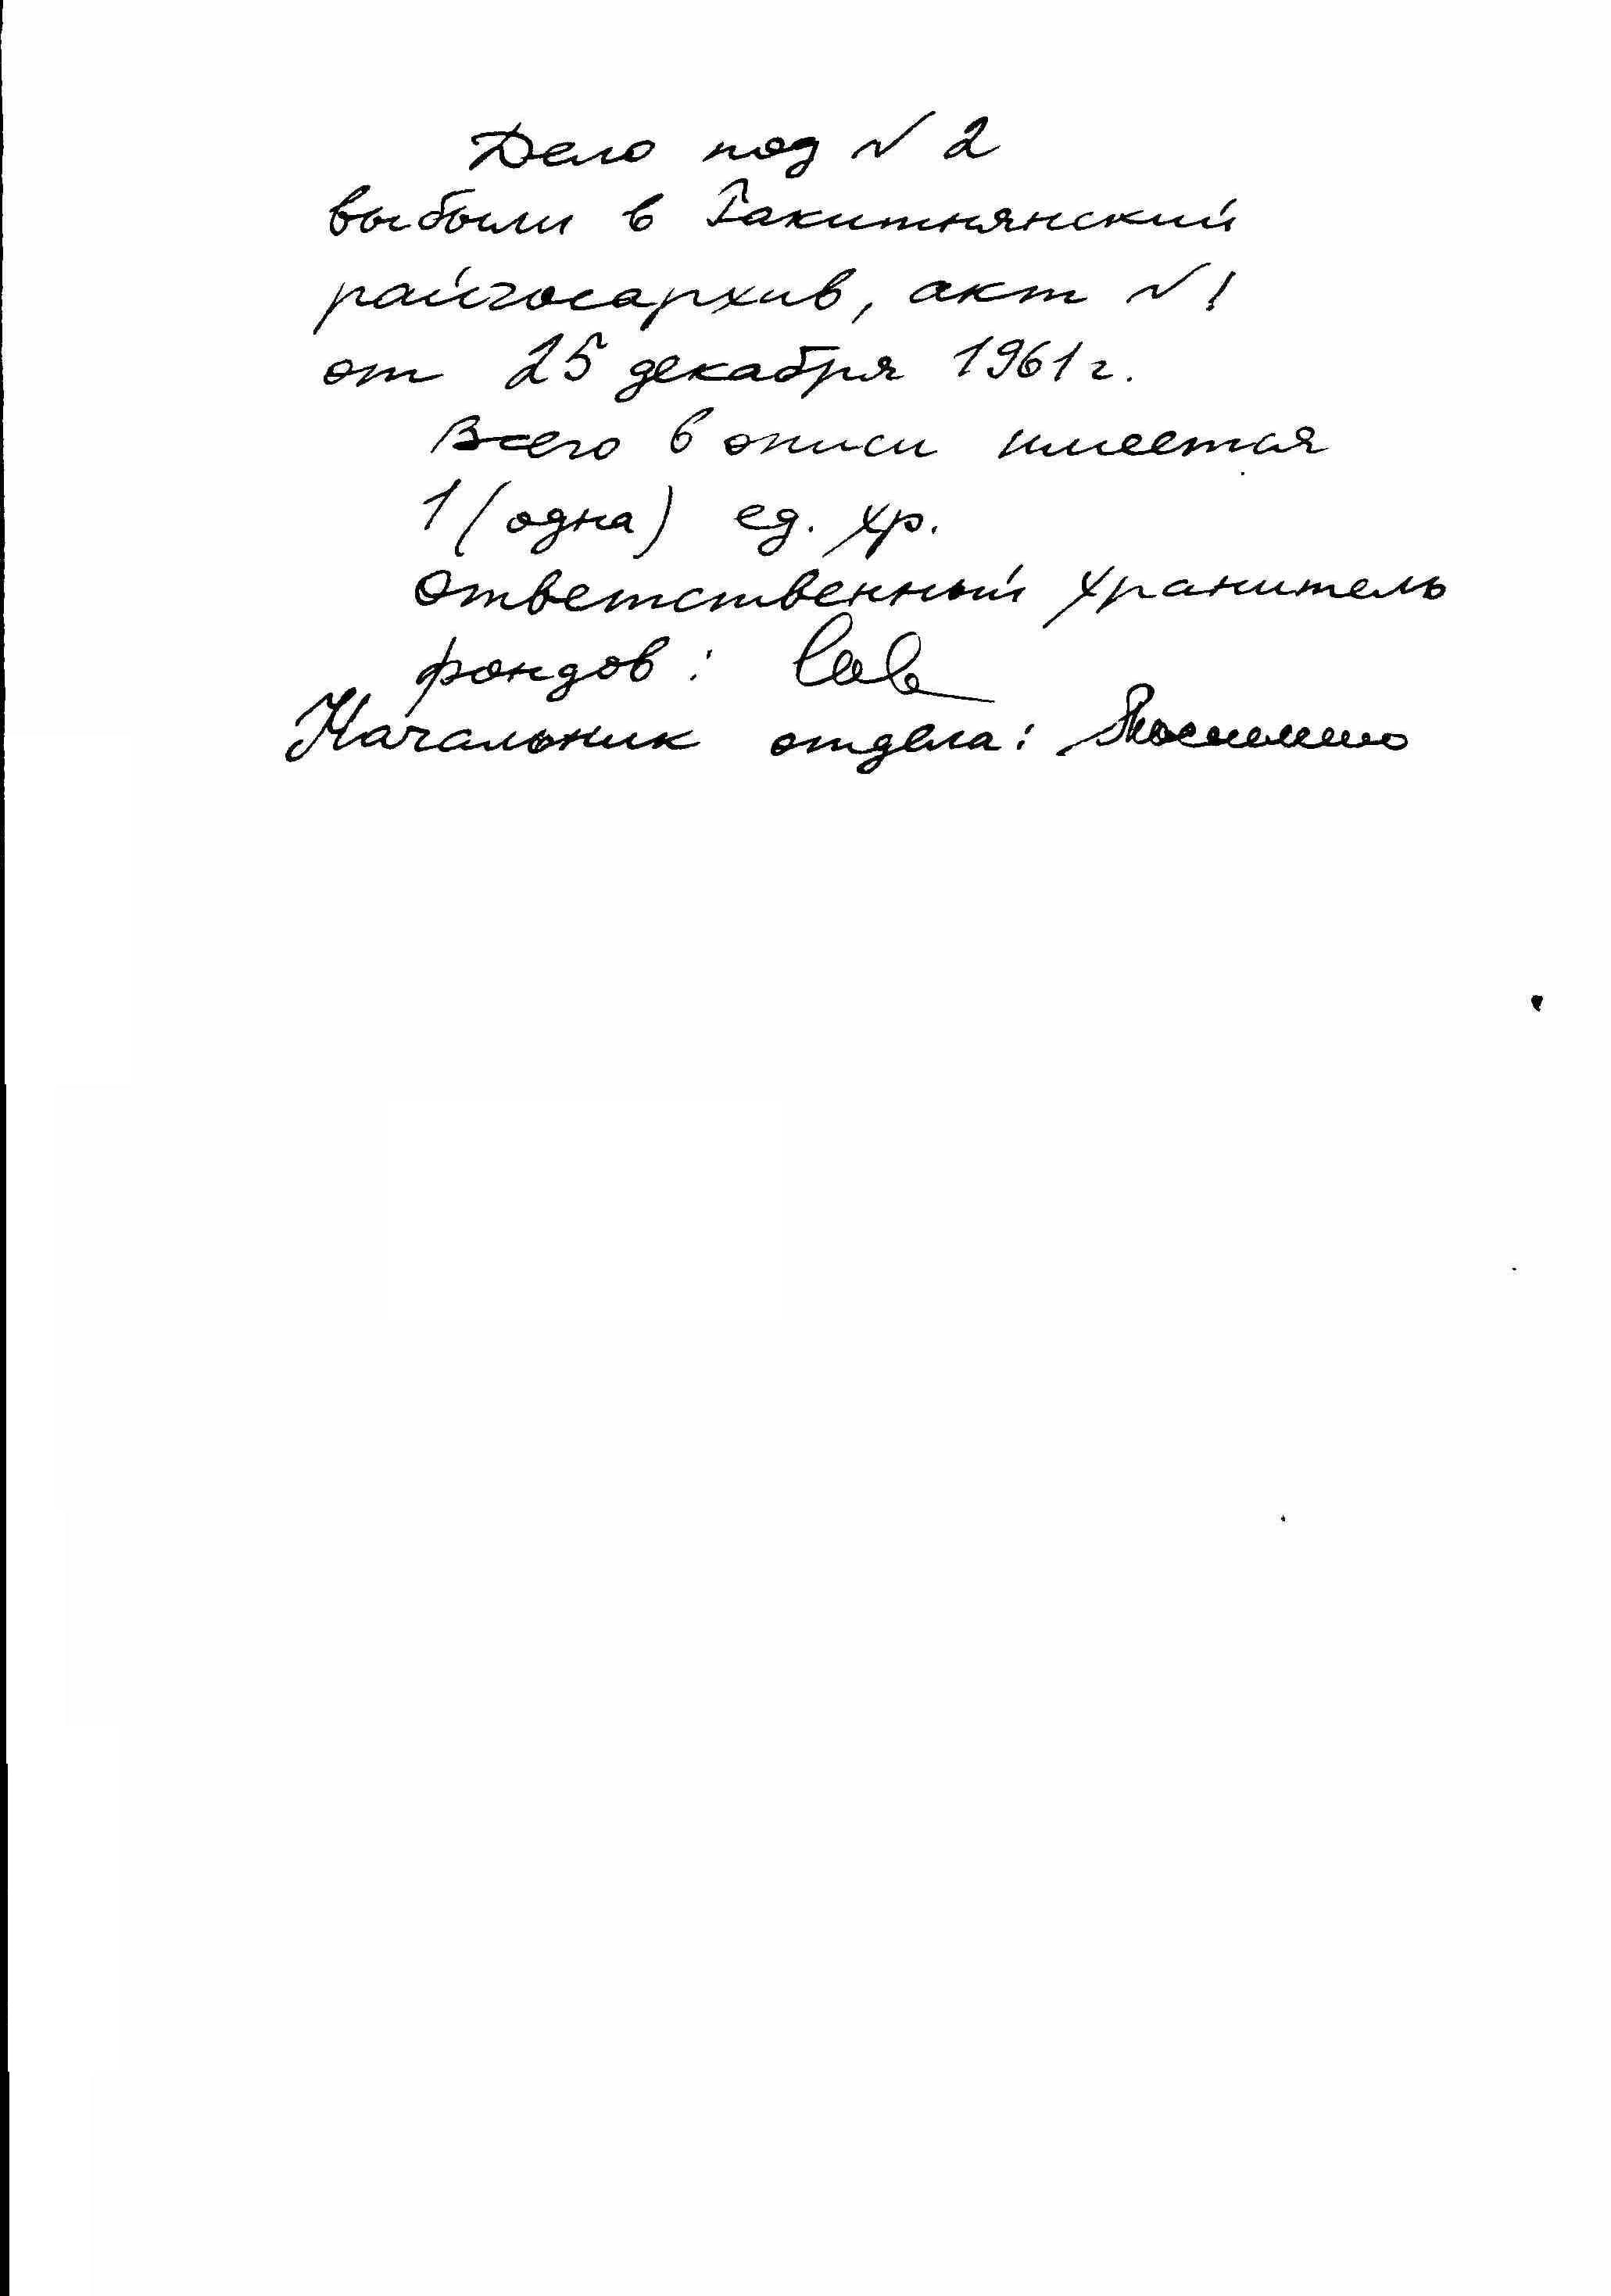 Дело под N 2
выбыли в Ракитнянский
райгосархив, акт N 1
от 25 декабря 1961 г.
Всего в описи имеется
1 (одна) ед. хр.
Ответственный хранитель
фондов:
Начальник отдела: